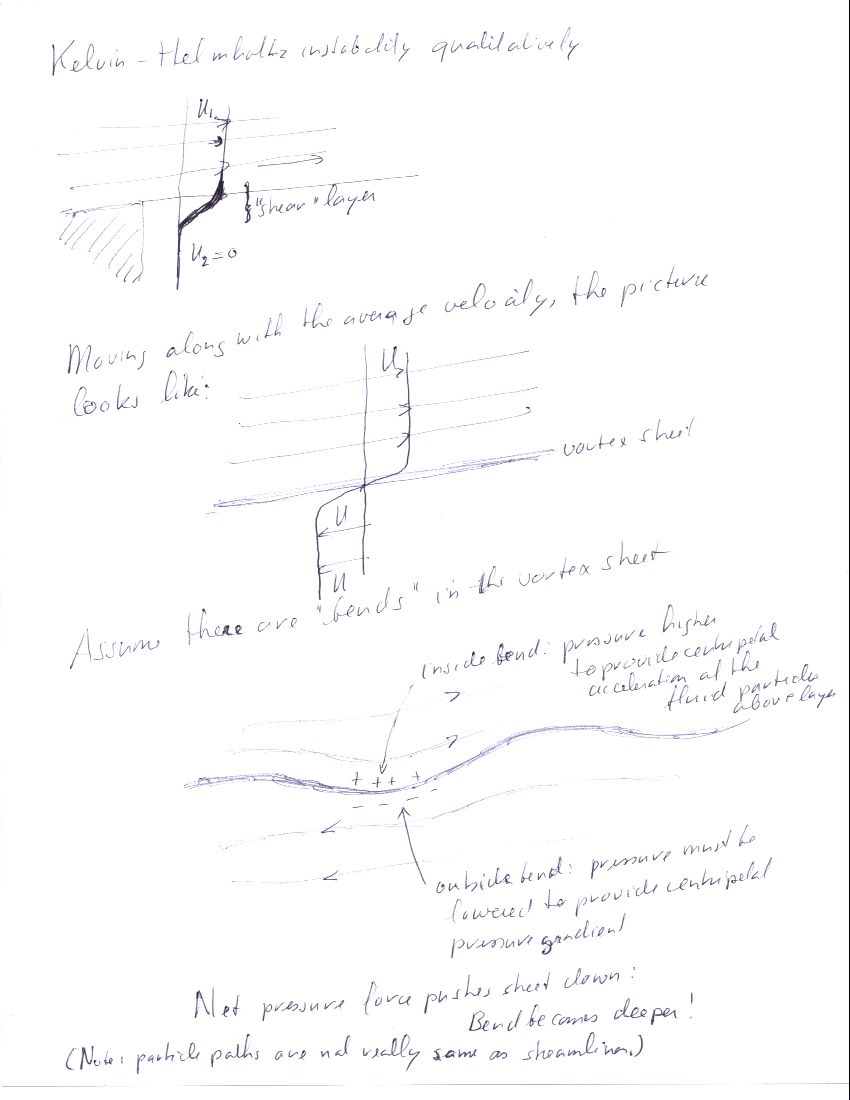 Kelvin-Helmholtz instability qualitatively
U₁
"shear" layer
U₂=0
Moving along with the average velocity, the picture
looks like:
U
vortex sheet
U
U
Assume there are "bends" in the vortex sheet
inside bend: pressure higher
to provide centripetal
acceleration of the
fluid particles
above layer
+ + + +
- - - -
outside bend: pressure must be
lowered to provide centripetal
pressure gradient
Net pressure force pushes sheet down:
Bend becomes deeper!
(Note: particle paths are not really same as streamlines.)